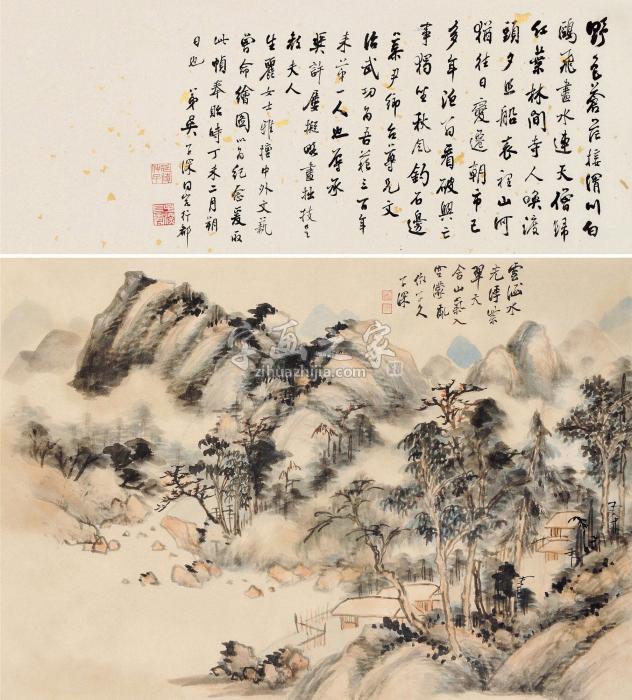 野色蒼茫接渭川白
鷗飛盡水連天僧歸
紅葉林間寺人喚渡
頭夕照船表裡山河
猶往日變遷朝市已
多年漁翁看破興亡
事獨坐秋風釣石邊
尊兄文
治武功為吾蘇三百年
来第一人也辱承
奬許屢擬略畫拙技呈
教夫人
生麗女士雅擅中外文藝
曾命繪圖以為紀念爰取
此幀奉貽時丁未二月朔
日也 弟吳子深同客行都
雲涵水
光浮紫
翠天
含山氣入
空濛
子深
字画之家
zihuazhijia.com